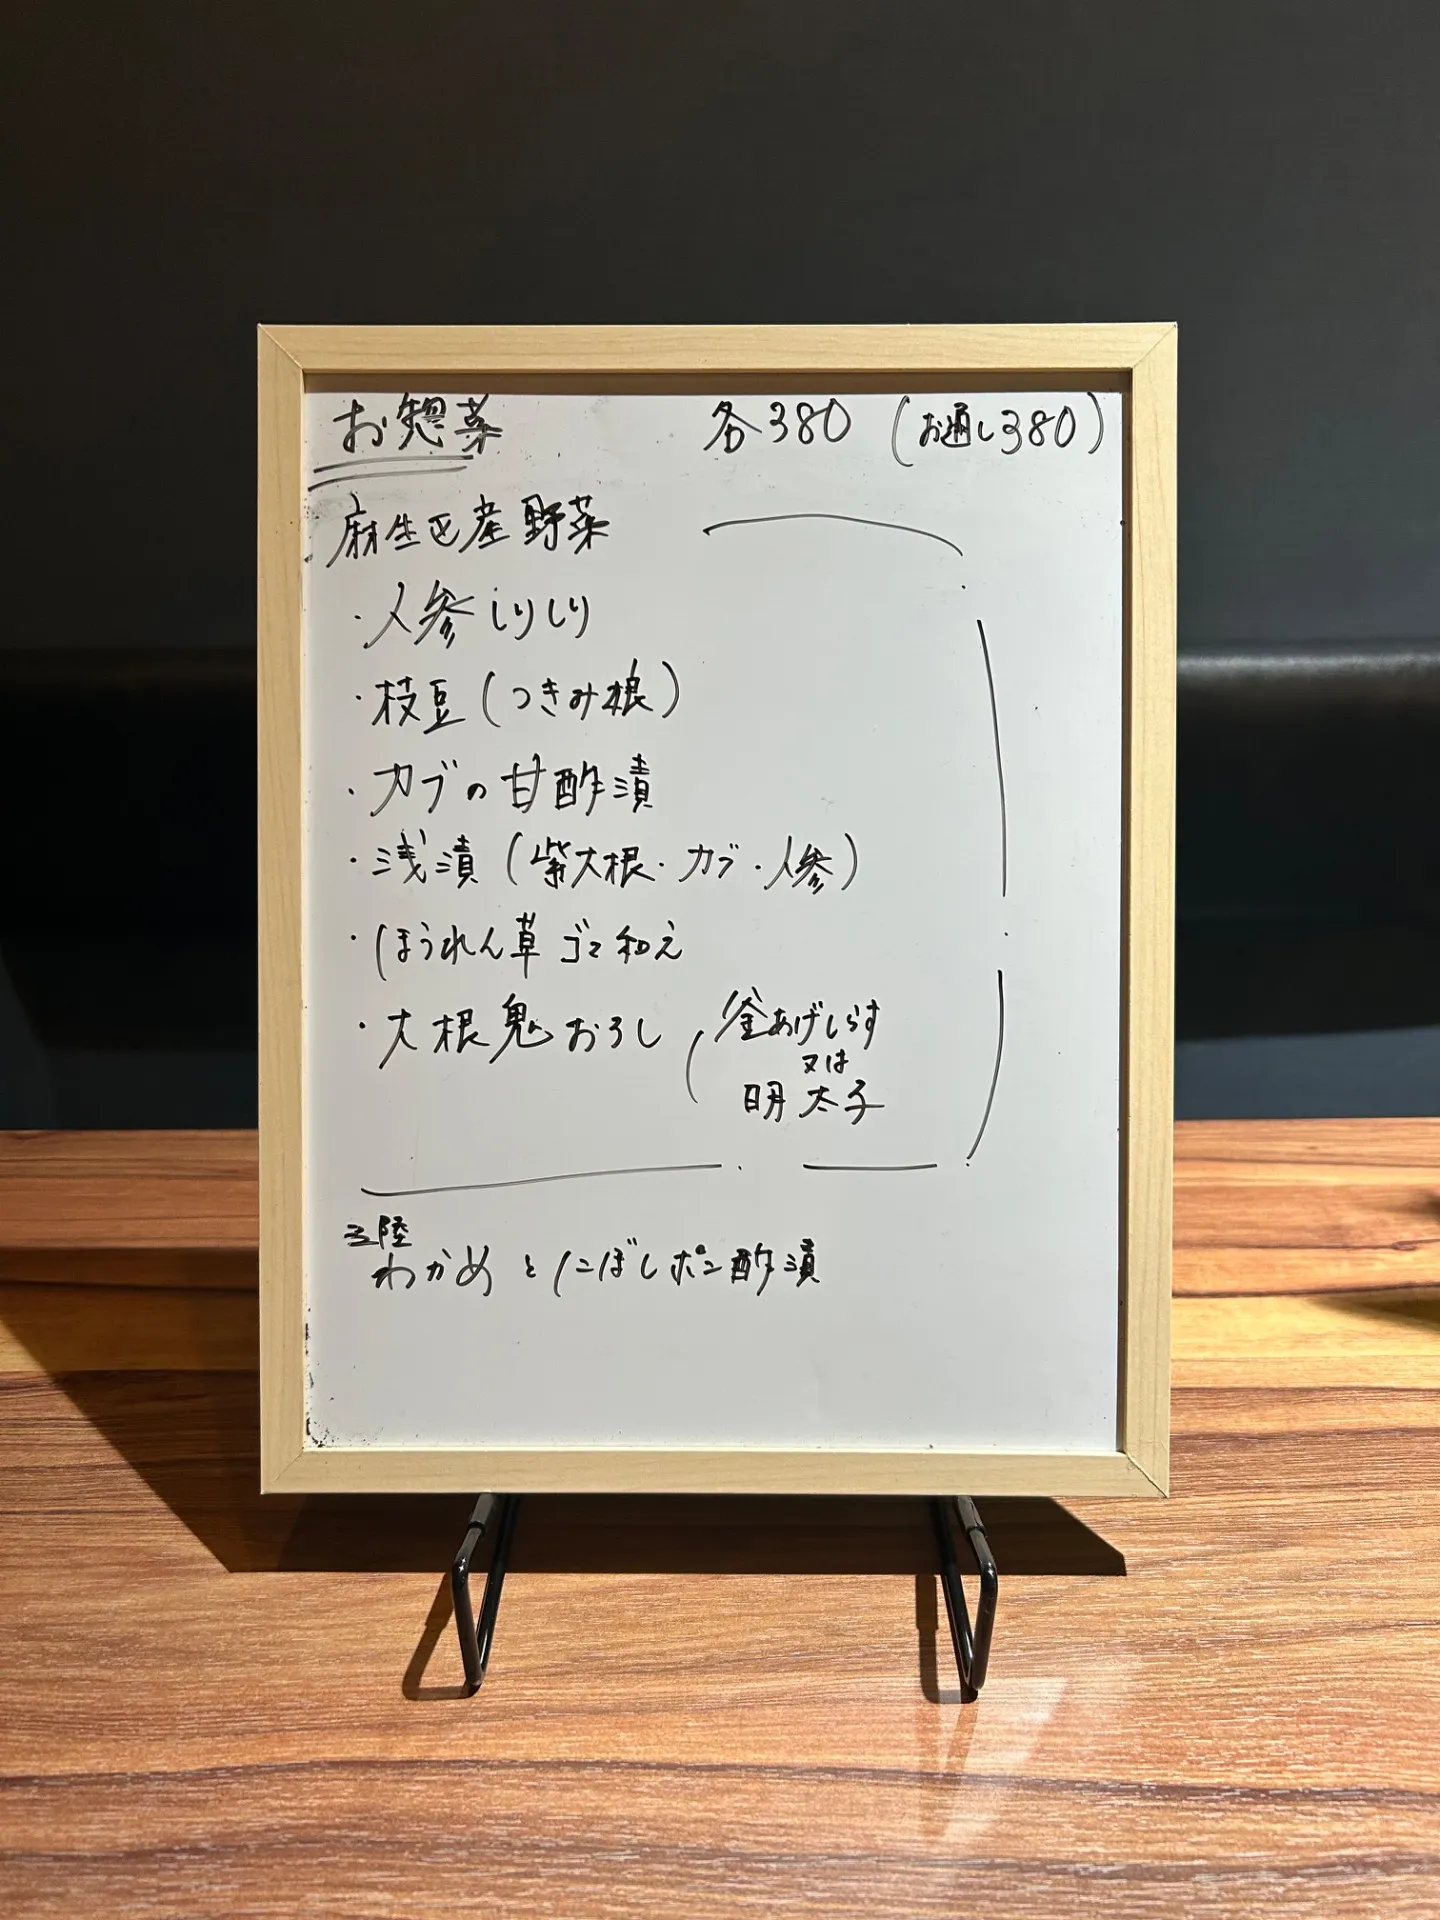 お惣菜 各380 (お通し380)
麻生区産野菜
・人参しりしり
・枝豆(つきみ根)
・カブの甘酢漬
・浅漬(紫大根・カブ・人参)
・ほうれん草ゴマ和え
・大根鬼おろし(釜あげしらす
又は
明太子
三陸
わかめとにぼしポン酢漬